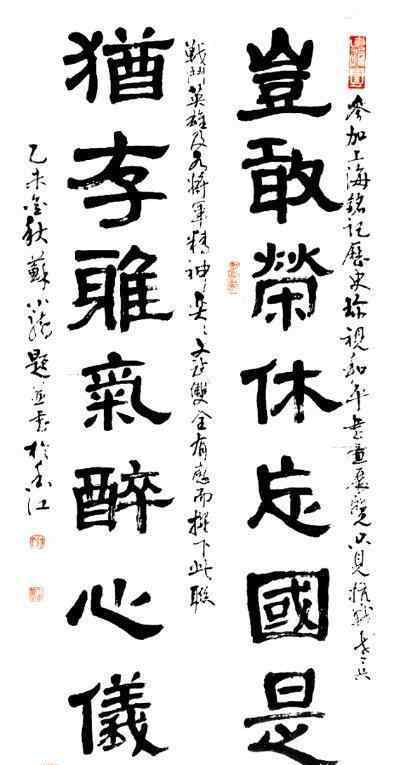 參加上海銘記歷史珍視和平書畫展覽以見抗戰老兵
豈敢榮休忘國是
戰鬥英雄及名將軍精神奕々文武雙全有感而撰下此聯
猶存雅氣醉心儀
乙未金秋蘇小題並書於江